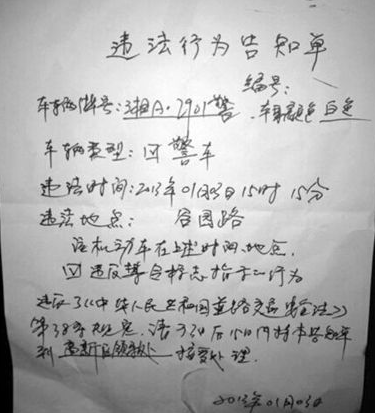 违法行为告知单
编号:
车辆牌号:湘A·2901警 车身颜色 白色
车辆类型: 警车
违法时间:2013年01月03日15时15分
违法地点: 谷园路
该机动车在上述时间、地点,
违反禁令标志指示 行为
违反了《中华人民共和国道路交通安全法》
第38条规定,请于 日内持本告知单
到 接受处理。
2013年01月03日